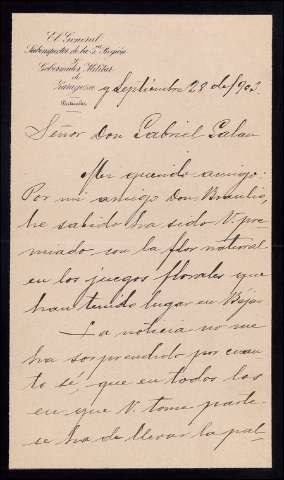 El General
Subinspector de la 5ª Región
y
Gobernador Militar
de
Zaragoza
Particular
y Septiembre 28 de /903.
Señor Don Gabriel Galan
Mi querido amigo:
Por mi amigo Don Braulio,
he sabido ha sido V. pre-
miado con la flor natural
en los juegos florales que
han tenido lugar en Bejar
La noticia no me
ha sorprendido por cuan-
to sé, que en todos los
en que V. tome parte
se ha de llevar la pal-